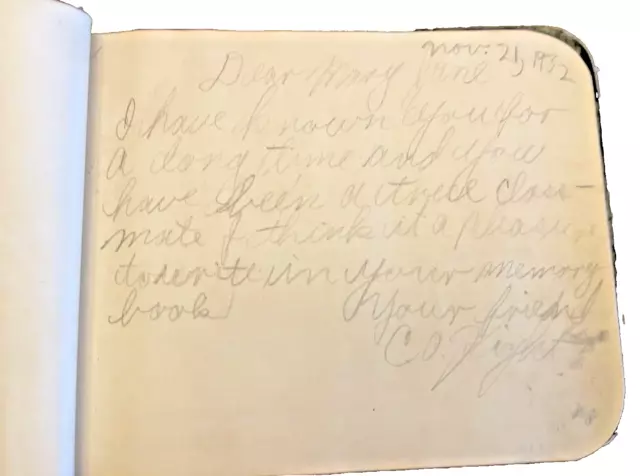 Nov. 21, 1932
Dear Mary Jane
I have known you for
a long time and you
have been a true class-
mate I think it a pleasure
to write in your memory
book
Your friend
C.O.